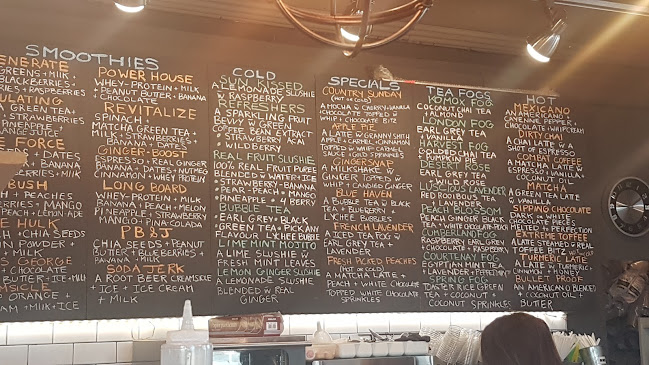 SMOOTHIES
ENERATE
GREENS + MILK
BLACKBERRIES
RIES + RASPBERRIES
ULATING
A GREEN TEA
+ STRAWBERRIES
PINEAPPLE +
ANGE JUICE
E FORCE
+ DATES
+ BANANA
ERRIES + MILK
BUSH
H + PEACHES
ERRIES + MANGO
PEACH + LEMON-ADE
E HULK
+ CHIA SEEDS
IN POWDER +
+ MILK
S GFORGE
+ CHOCOLATE
BUTTER + ICE + MILK
MSICLE
ORANGE +
AM + MILK + ICE
POWER HOUSE
WHEY-PROTEIN + MILK
PEANUT BUTTER + BANANA
CHOCOLATE
REVITALIZE
SPINACH +
MATCHA GREEN TEA +
MILK + STRAWBERRIES
BANANA + DATES +
GINGER-BOOST
ESPRESSO + REAL GINGER
BANANA + DATES + NUTMEG
CINNAMON + WHEY PROTEIN
LONG BOARD
WHEY-PROTEIN + MILK
BANANA + PEACH + MELON
PINEAPPLE + STRAWBERRY
MANGO + PINA-COLADA
PB&J
CHIA SEEDS + PEANUT
BUTTER + BLUEBERRIES +
BANANA + MILK
SODA JERK
A ROOT BEER CREAMSICLE
+ ICE + ICE CREAM
+ MILK
COLD
SUN KISSED
A LEMONADE SLUSHIE
W RASPBERRY
REFRESHERS
A SPARKLING FRUIT
BEV W GREEN
COFFEE BEAN EXTRACT
- STRAWBERRY ACAI
- WILDBERRY
REAL FRUIT SLUSHIE
100% REAL FRUIT PUREE
BLENDED W WATER + ICE
STRAWBERRY + BANANA
PEAR + PEACH + MANGO
PINEAPPLE + 4 BERRY
BUBBLE TEA
EARL GREY + BLACK
GREEN TEA + PICK ANY
FLAVOUR LYCHEE BUBBLE
LIME MINT MOJITO
A LIME SLUSHIE W
FRESH MINT LEAVES
LEMON GINGER SLUSHIE
A LEMONADE SLUSHIE
BLENDED W REAL
GINGER
SPECIALS
COUNTRY SUNDAY
(HOT OR COLD)
A MOCHA W CHERRY + VANILLA
CHOCOLATE TOPPED W
WHIP + CHOCOLATE BITZ
APPLE PIE
A LATTE W GRANNY SMITH
APPLE + CARMEL + CINNAMON
TOPPED W WHIP + CARMEL
SAUCE + GOLD SPRINKLES
GINGERSNAP
A MILKSHAKE W
GINGER TOPPED W
WHIP + CANDIED GINGER
BLUE HAVEN
A BUBBLE TEA W BLACK
TEA + BLUEBERRY +
LYCHEE BUBBLES
FRENCH LAVENDER
ICED TEA FOG W
EARL GREY TEA +
LAVENDER
FRESH PICKED PEACHES
(HOT OR COLD)
A MATCHA LATTE +
PEACH + WHITE CHOCOLATE
TOPPED WHITE CHOCOLATE
SPRINKLES
TEA FOGS
KOMOX FOG
COCONUT CHAI TEA
+ ALMOND
LONDON FOG
EARL GREY TEA
+ VANILLA
HARVEST FOG
COCONUT CHAI TEA
+ PUMPKIN SPICE
DESERT ROSE
EARL GREY TEA
+ ROSE
LUSCIOUS LAVENDER
RED ROOIBUS TEA
+ LAVENDER
PEACH BLOSSOM
PEACH GINGER BLACK
TEA + WHITE CHOCOLATE
CUMBERLAND FOG
EARL GREY + BLACKBERRY
+ CHOCOLATE + RASPBERRY
COURTENAY FOG
EGYPTIAN MINT TEA
+ LAVENDER + PEPPERMINT
SPRING FOG
TOASTED RICE GREEN
TEA + COCONUT +
COCONUT SPRINKLES
HOT
MEXICANO
AN AMERICANO W
CAYENNE PEPPER +
CHOCOLATE + WHIPCREAM
DIRTY CHAI
A CHAI LATTE W A
SHOT OF ESPRESSO
COMBAT COFFEE
A MATCHA LATTE W
ESPRESSO + VANILLA
+ COCONUT
MATCHA
A GREEN TEA LATTE
W VANILLA
SIPPING CHOCOLATE
DARK OR WHITE
CHOCOLATE PIECES
MELTED TO PERFECTION
EXTREME TOFFEE
A LATTE STEAMED W REAL
TOFFEE BITZ
TURMERIC LATTE
A LATTE W TURMERIC +
CINNAMON + HONEY
BULLET PROOF
AN AMERICANO BLENDED
W COCONUT OIL +
BUTTER